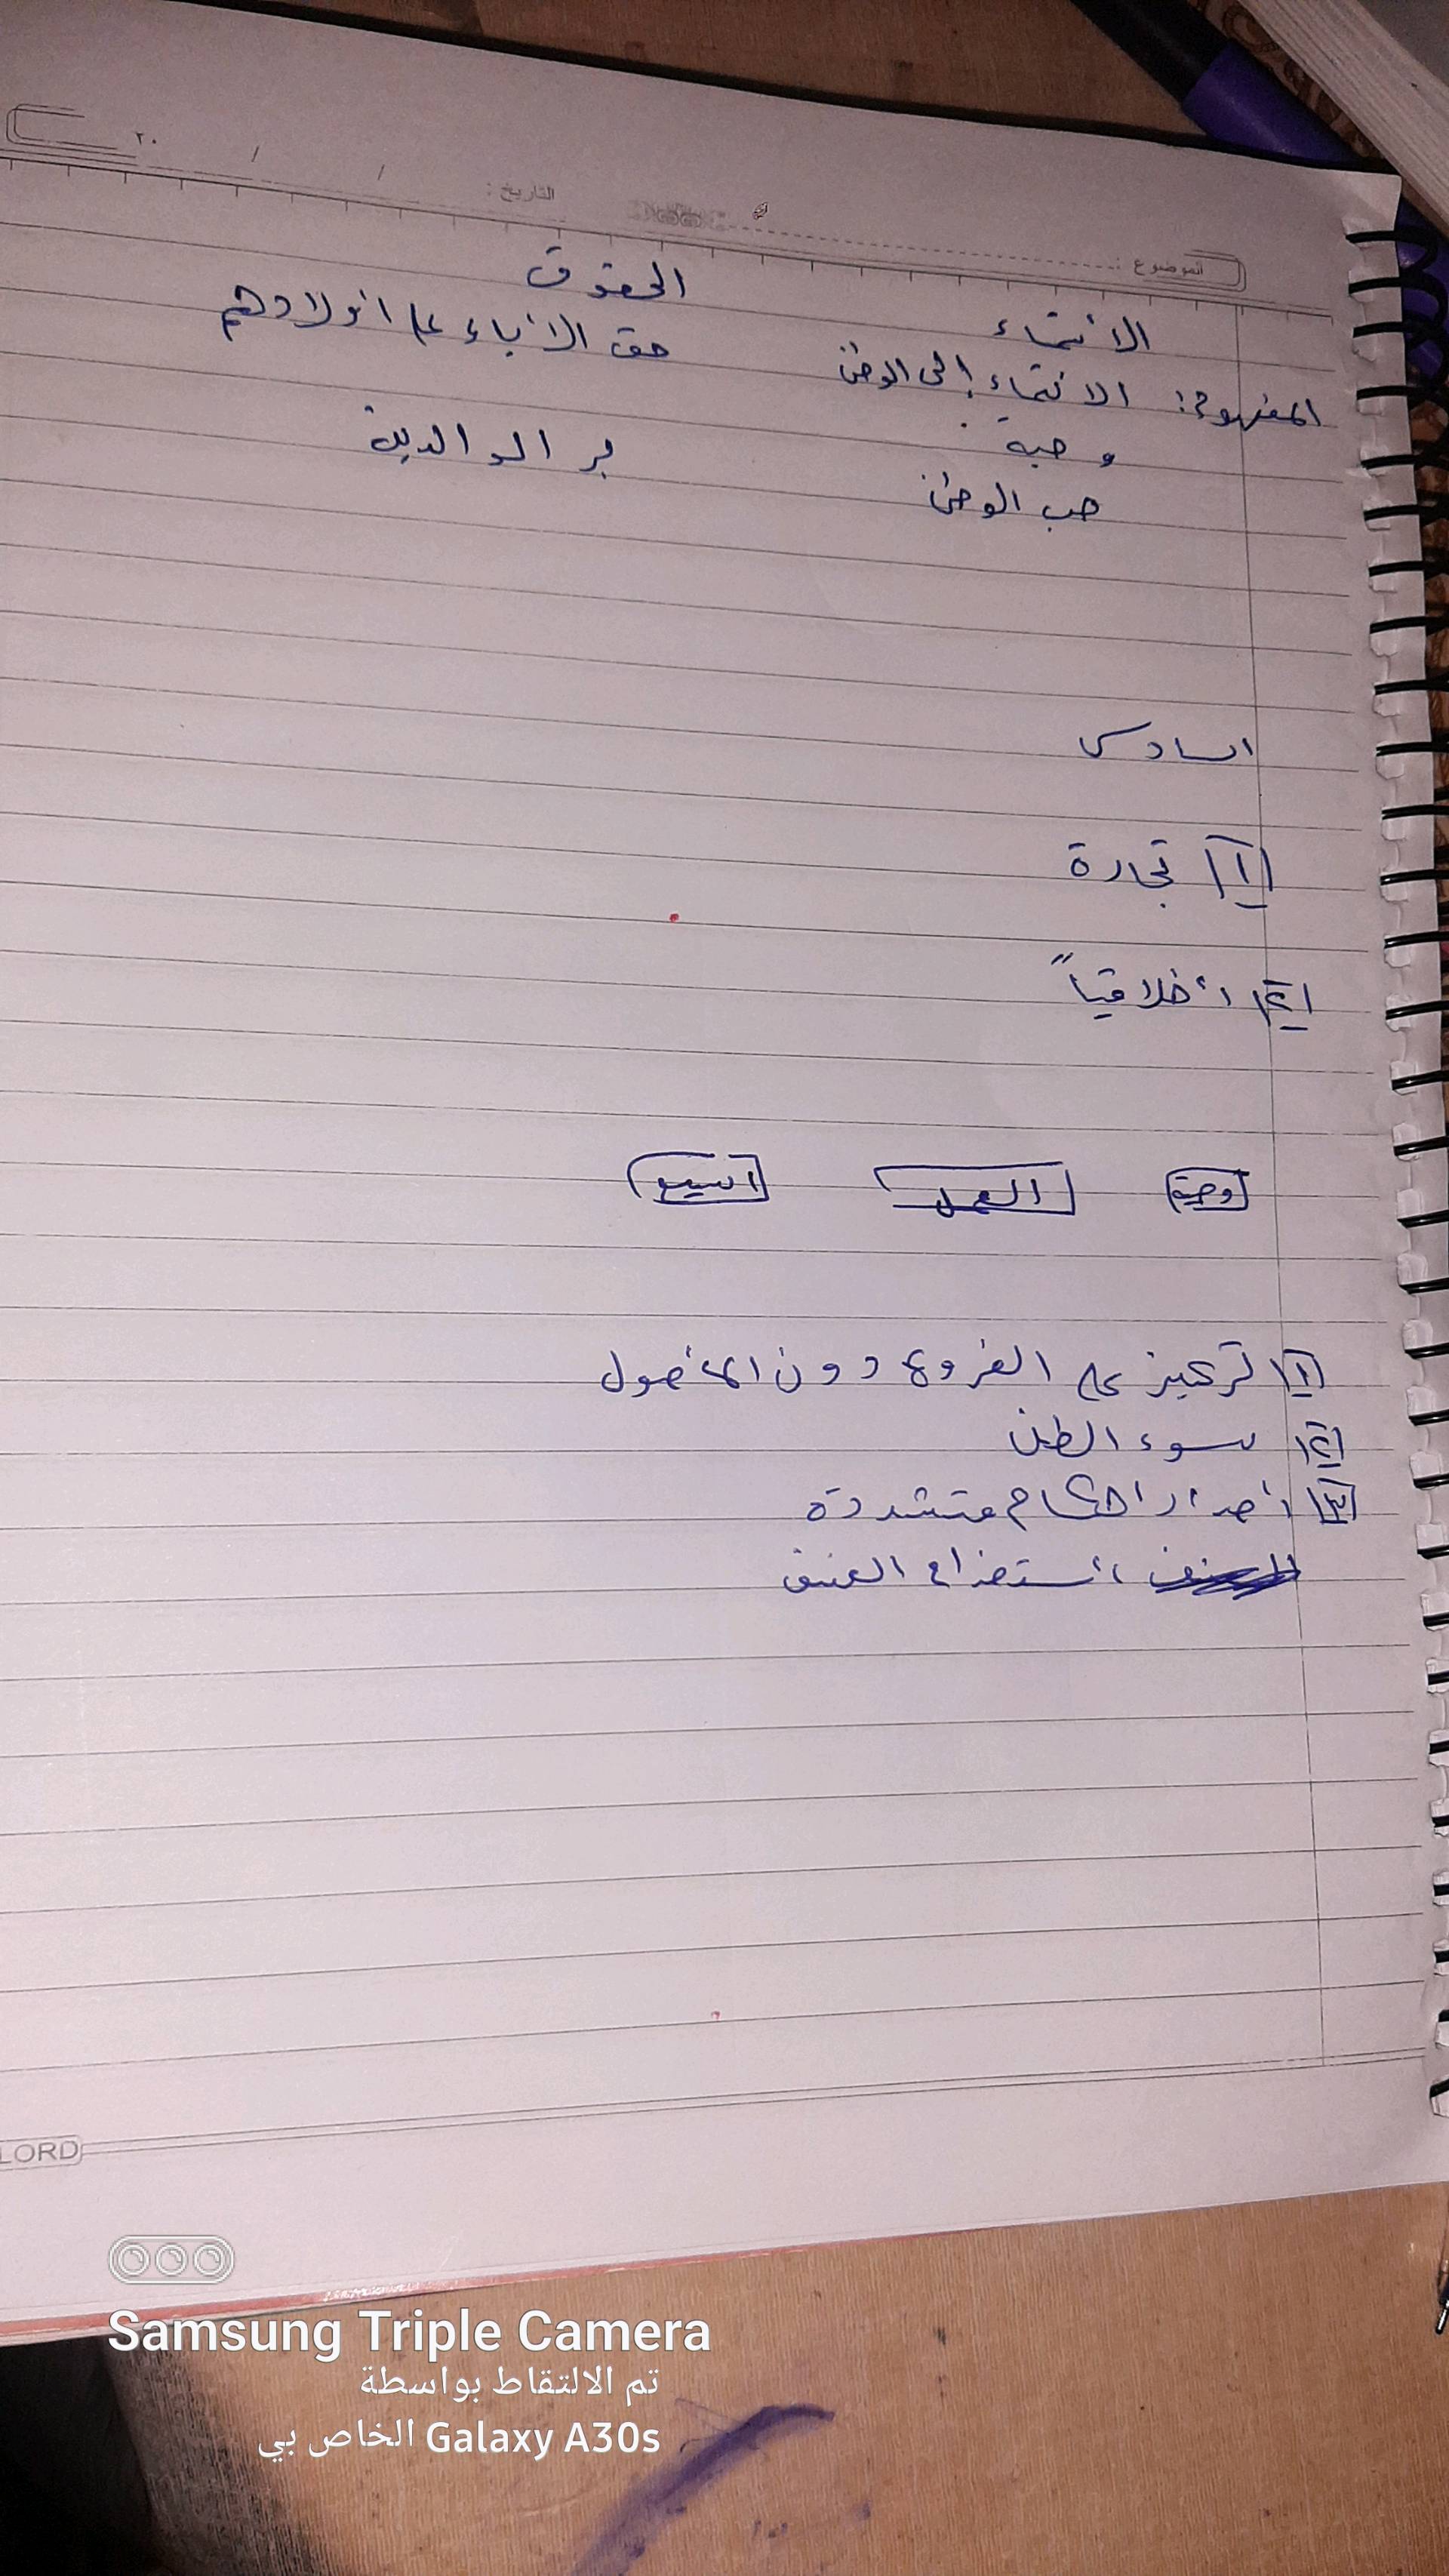 الموضوع :
التاريخ : / / ٢٠
الانتماء
المفهوم: الانتماء إلى الوطن
و حبه
حب الوطن
الحقوق
حق الأباء على أولادهم
بر الوالدين
السادس
١ تجارة
٢ أخلاقياً
العمل
١ تركيز على الفروع دون الأصول
٢ سوء الظن
٣ أصدار احكام متشددة
أستخدام العنف
LORD
Samsung Triple Camera
تم الالتقاط بواسطة
Galaxy A30s الخاص بي